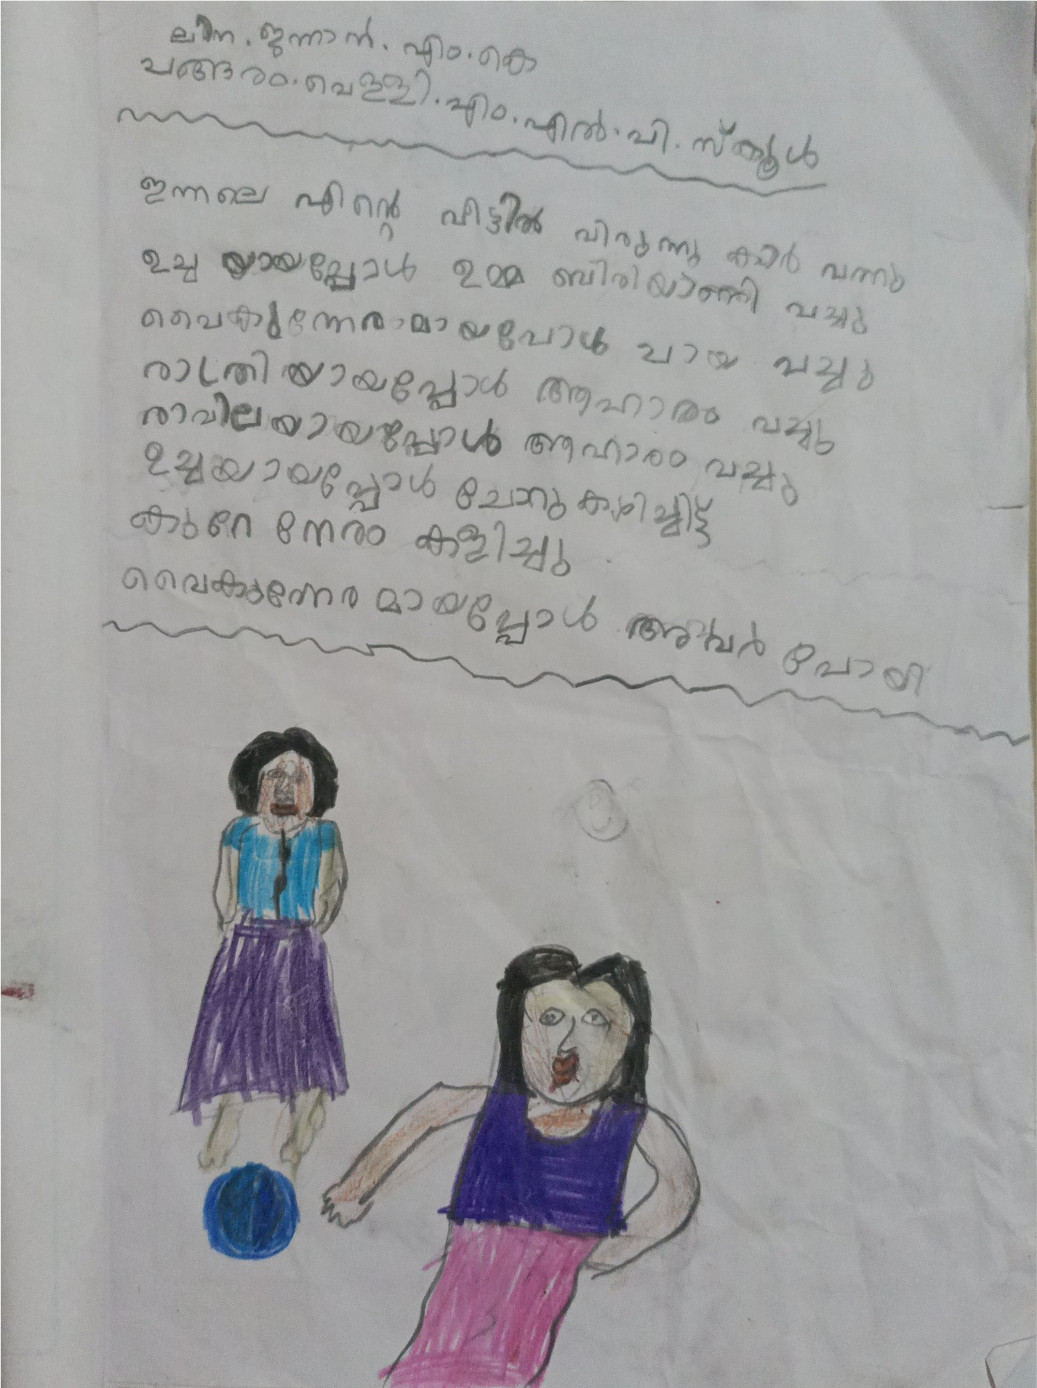 ലിന.ജന്നാൻ.എം.കെ
പങ്ങരം.വെള്ളി.എം.എൽ.പി.സ്കൂൾ
ഇന്നലെ എൻ്റെ വീട്ടിൽ വിരുന്നു കാർ വന്നു
ഉച്ച യായപ്പോൾ ഉമ്മ ബിരിയാണി വച്ചു
വൈകുന്നേരാമായപോൾ ചായ വച്ചു
രാത്രിയായപ്പോൾ ആഹാരം വച്ചു
രാവിലയായപ്പോൾ ആഹാരം വച്ചു
ഉച്ചയായപ്പോൾ ചോറു കഴിച്ചിട്ട്
കുറേ നേരം കളിച്ചു
വൈകുന്നേര മായപ്പോൾ അവർ പോയി